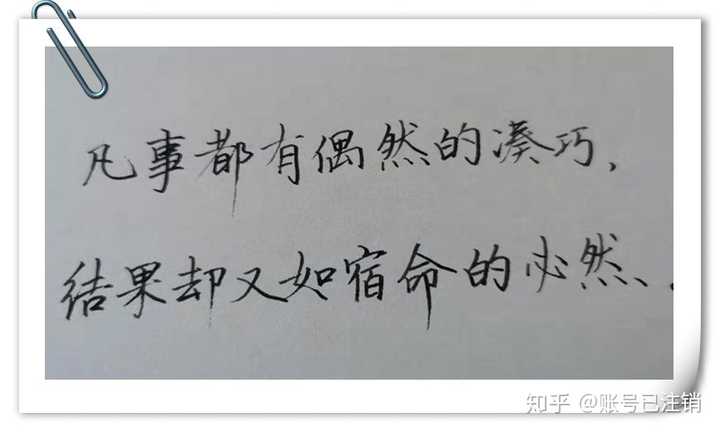 凡事都有偶然的凑巧，
结果却又如宿命的必然。
知乎 @账号已注销